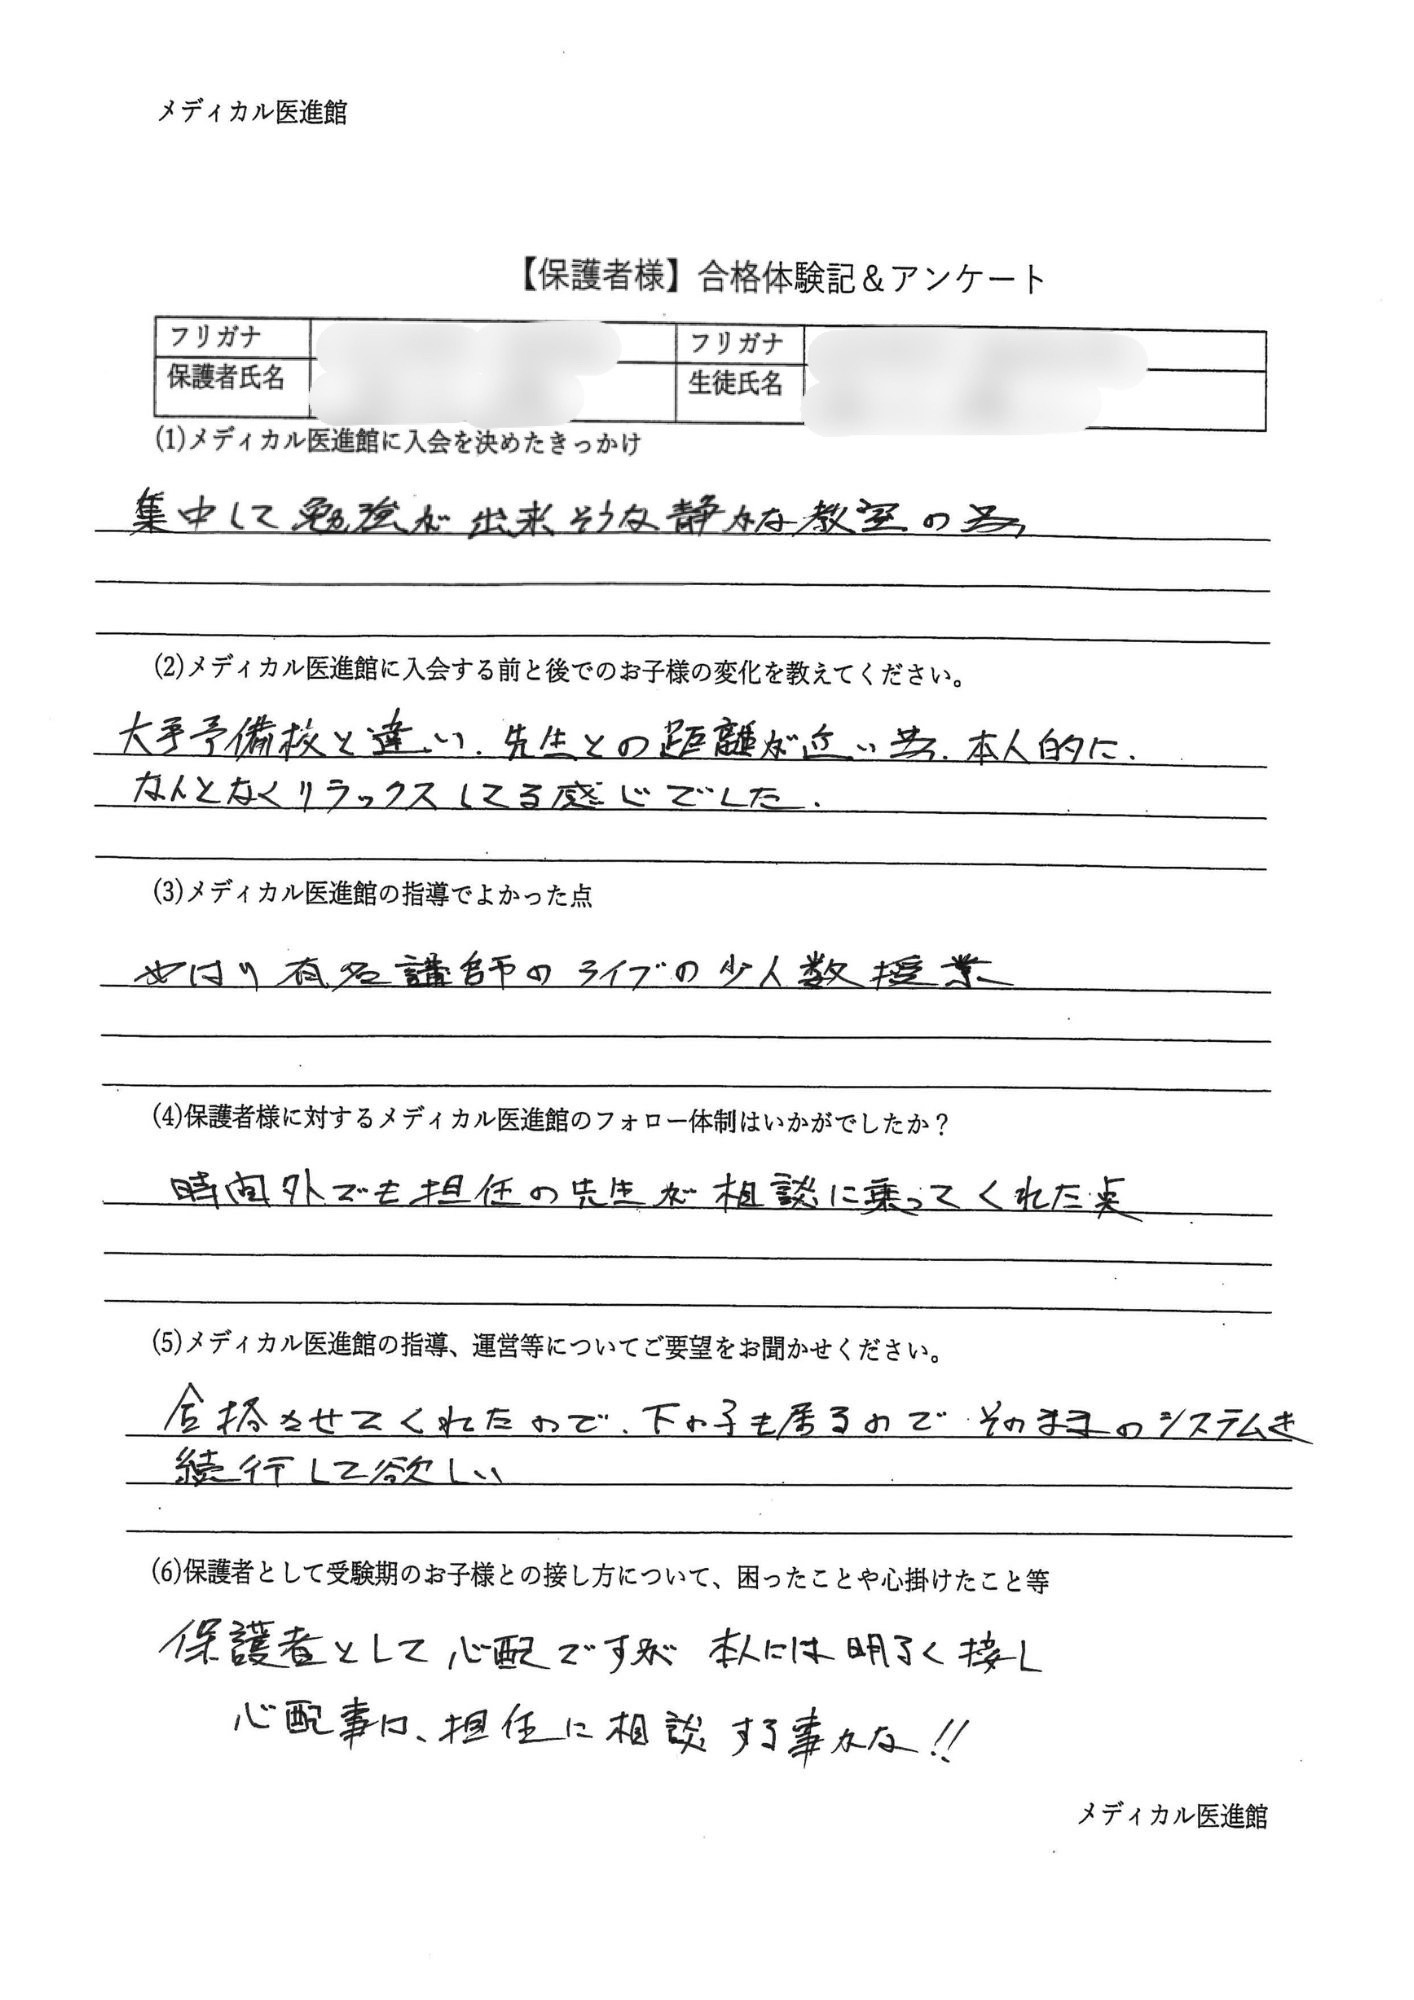 メディカル医進館
【保護者様】合格体験記＆アンケート
フリガナ フリガナ
保護者氏名 生徒氏名
(1)メディカル医進館に入会を決めたきっかけ
集中して勉強が出来そうな静かな教室の為
(2)メディカル医進館に入会する前と後でのお子様の変化を教えてください。
大手予備校と違い、先生との距離が近い為、本人的に、
なんとなくリラックスしてる感じでした。
(3)メディカル医進館の指導でよかった点
やはり有名講師のライブの少人数授業
(4)保護者様に対するメディカル医進館のフォロー体制はいかがでしたか？
時間外でも担任の先生が相談に乗ってくれた点
(5)メディカル医進館の指導、運営等についてご要望をお聞かせください。
合格させてくれたので、下の子も居るので そのままのシステムを
続行して欲しい
(6)保護者として受験期のお子様との接し方について、困ったことや心掛けたこと等
保護者として心配ですが 本人には明るく接し
心配事は、担任に相談する事かな!!
メディカル医進館